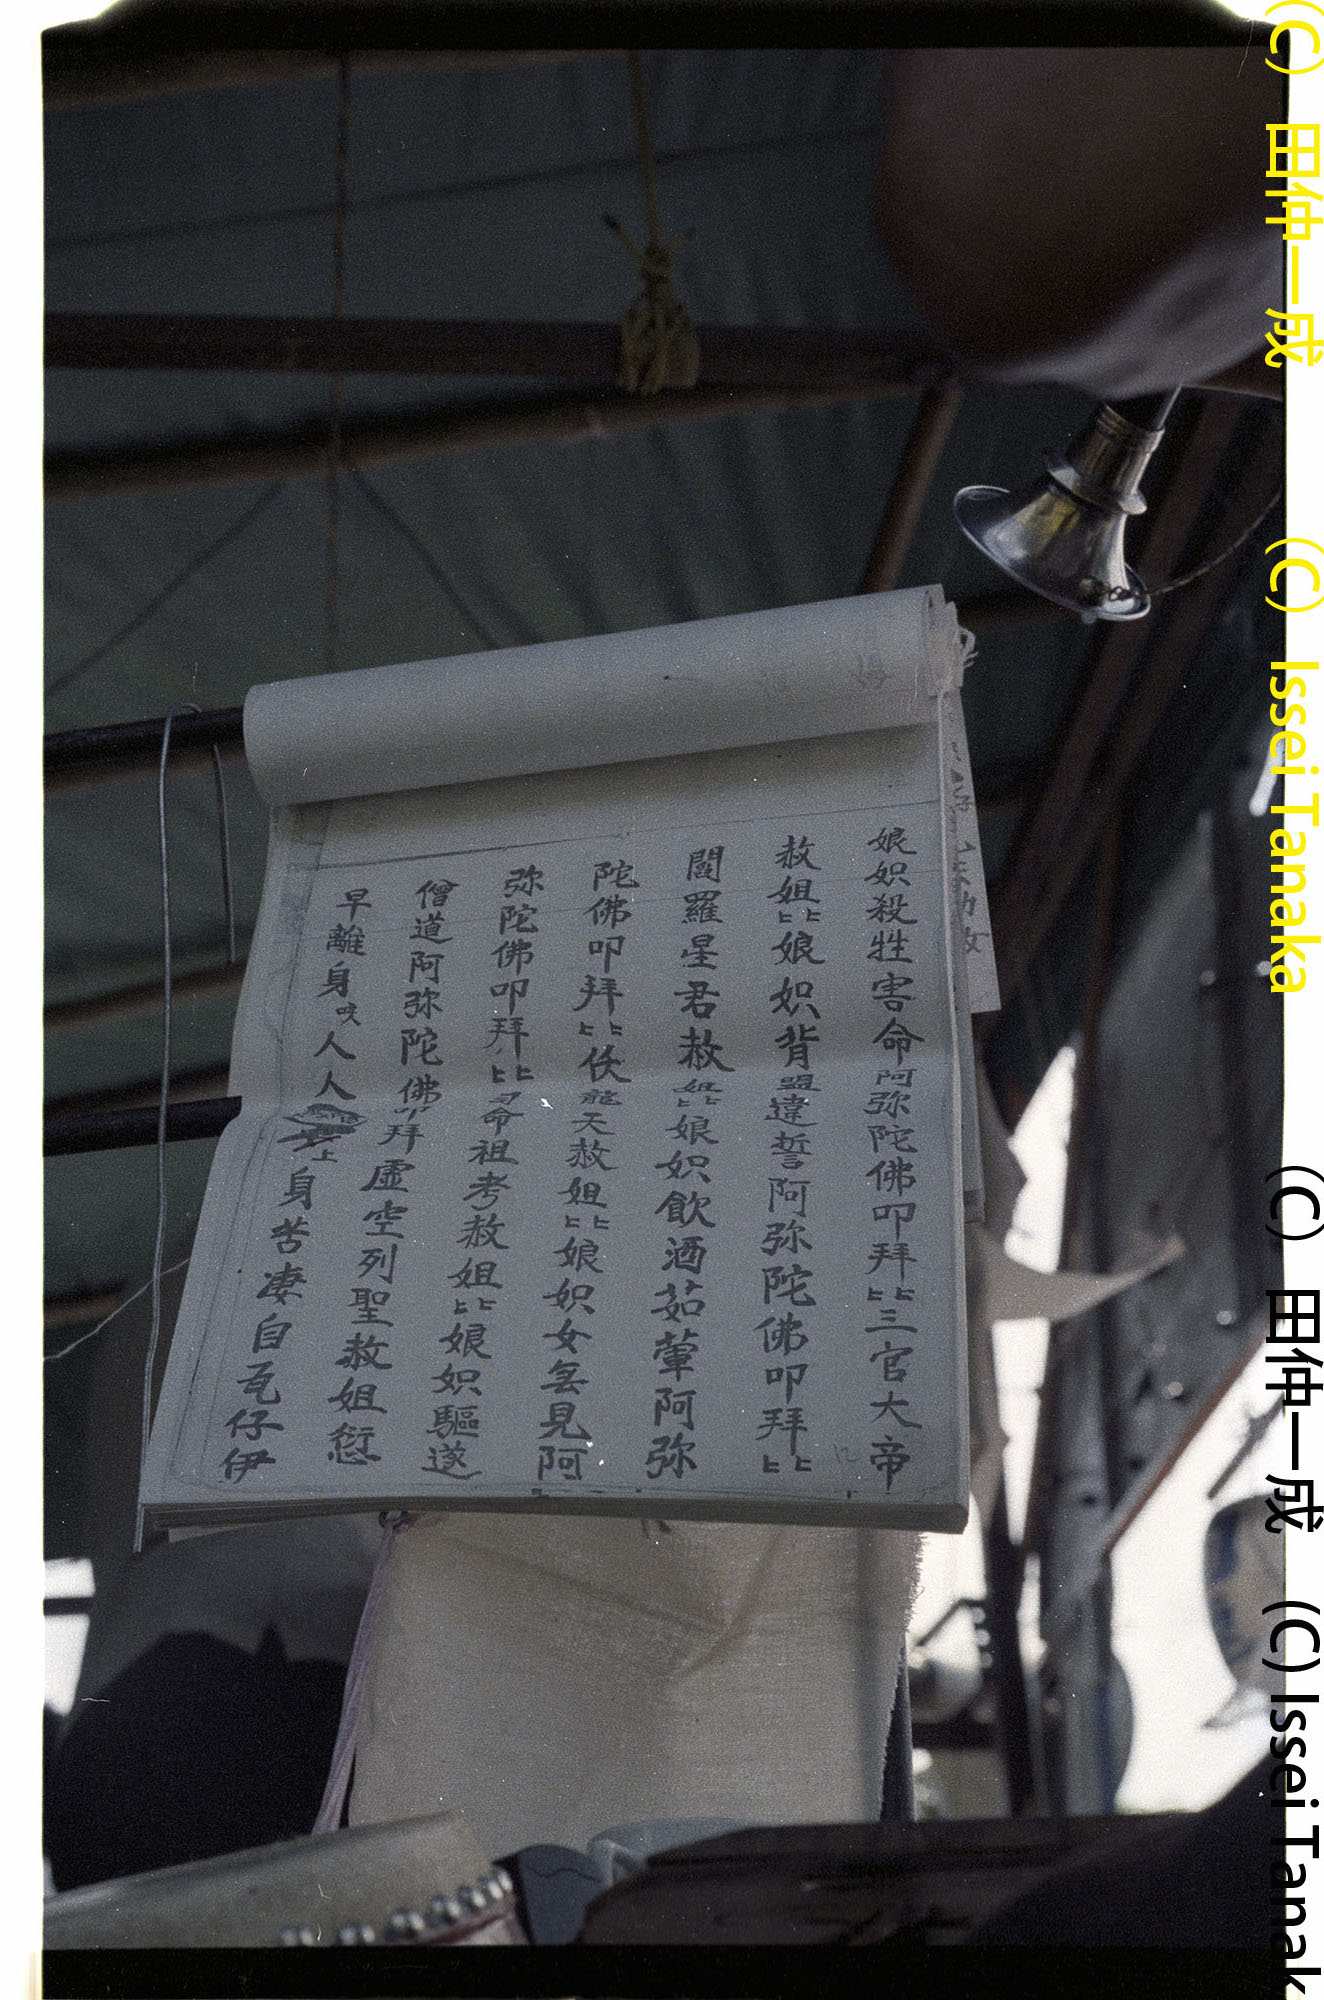 娘妉殺牲害命阿弥陀佛叩拜〻三官大帝
赦姐〻娘妉背盟違誓阿弥陀佛叩拜〻
閻羅星君赦姐〻娘妉飲酒茹葷阿弥
陀佛叩拜〻伏龍天赦姐〻娘妉女無見阿
弥陀佛叩拜〻司命祖考赦姐〻娘妉驅邃
僧道阿弥陀佛叩拜虛空列聖赦姐愆
早離身哎人人上身苦凄自瓦仔伊
(C) 田仲一成 (C) Issei Tanaka
(C) 田仲一成 (C) Issei Tanak